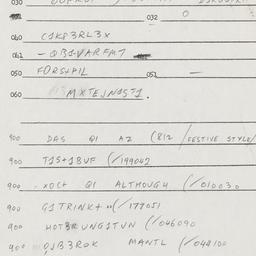 030
032 0
060 C1KP3RL3X
061 - QB1-VARFM7
050 FORS+PIL 052 —
060 MXTEJNIST1.
900 DAS QI AZ (812 /FESTIVE STYLE/
900 T1S+1BUF (/199042
900 - XOCT QI ALTHOUGH (/01003.0
900 G1TRINK+ (/177051
900 UNG1TVN (/046090
900 QJB3ROK MANTL (/044100